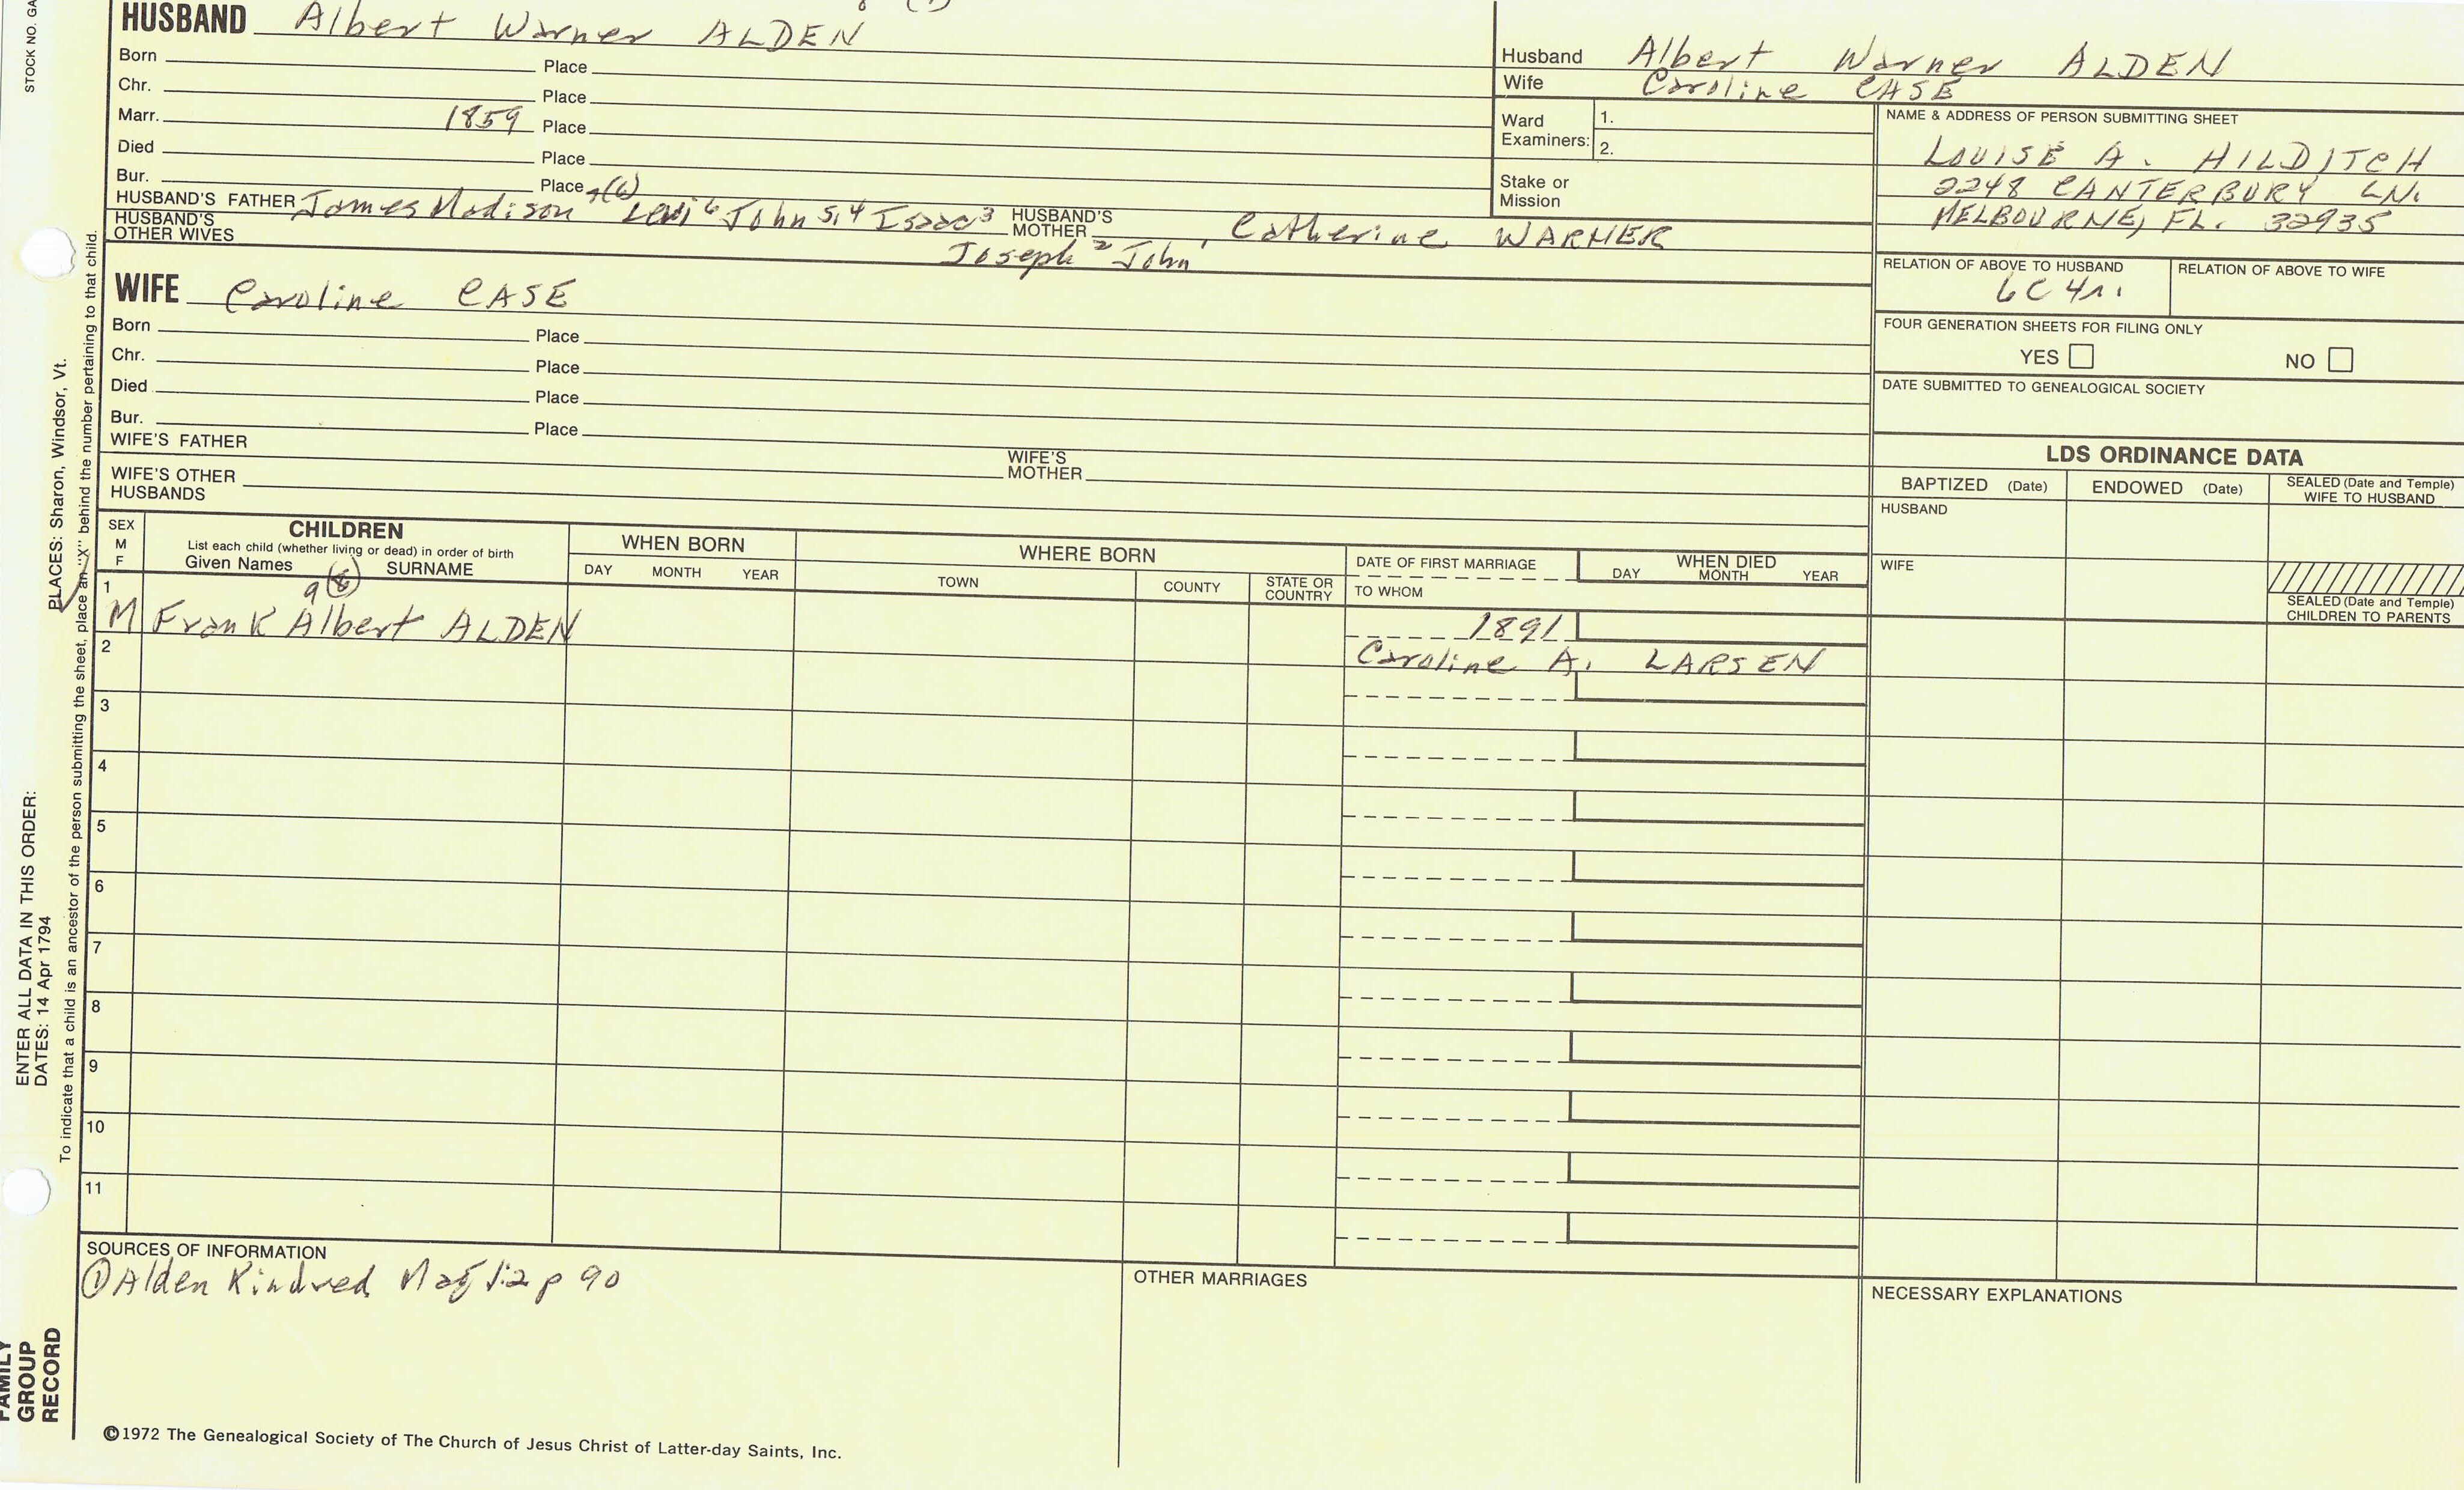 STOCK NO. GA
HUSBAND Albert Warner ALDEN
Born Place
Chr. Place
Marr. 1859 Place
Died Place
Bur. Place
HUSBAND'S FATHER James Madison 7(6) Levi 6 John 5,4 Isaac 3 HUSBAND'S MOTHER Catherine WARNER
HUSBAND'S OTHER WIVES Joseph 2 John 1
WIFE Caroline CASE
Born Place
Chr. Place
Died Place
Bur. Place
WIFE'S FATHER WIFE'S MOTHER
WIFE'S OTHER HUSBANDS
Husband Albert Warner ALDEN
Wife Caroline CASE
Ward Examiners: 1.
2.
Stake or Mission
NAME & ADDRESS OF PERSON SUBMITTING SHEET
LOUISE A. HILDITCH
2248 CANTERBURY LN.
MELBOURNE, FL. 32935
RELATION OF ABOVE TO HUSBAND RELATION OF ABOVE TO WIFE
6C 4r.
FOUR GENERATION SHEETS FOR FILING ONLY
YES NO
DATE SUBMITTED TO GENEALOGICAL SOCIETY
LDS ORDINANCE DATA
BAPTIZED (Date) ENDOWED (Date) SEALED (Date and Temple) WIFE TO HUSBAND
HUSBAND
WIFE
SEALED (Date and Temple) CHILDREN TO PARENTS
SEX M F
CHILDREN
List each child (whether living or dead) in order of birth
Given Names SURNAME
WHEN BORN
DAY MONTH YEAR
WHERE BORN
TOWN COUNTY STATE OR COUNTRY
DATE OF FIRST MARRIAGE
TO WHOM
WHEN DIED
DAY MONTH YEAR
9 (8)
1 M Frank Albert ALDEN 1891
Caroline A. LARSEN
2
3
4
5
6
7
8
9
10
11
SOURCES OF INFORMATION
① Alden Kindred Mag 1:2 p 90
OTHER MARRIAGES
NECESSARY EXPLANATIONS
©1972 The Genealogical Society of The Church of Jesus Christ of Latter-day Saints, Inc.
FAMILY GROUP RECORD
ENTER ALL DATA IN THIS ORDER:
DATES: 14 Apr 1794
PLACES: Sharon, Windsor, Vt.
To indicate that a child is an ancestor of the person submitting the sheet, place an "X" behind the number pertaining to that child.